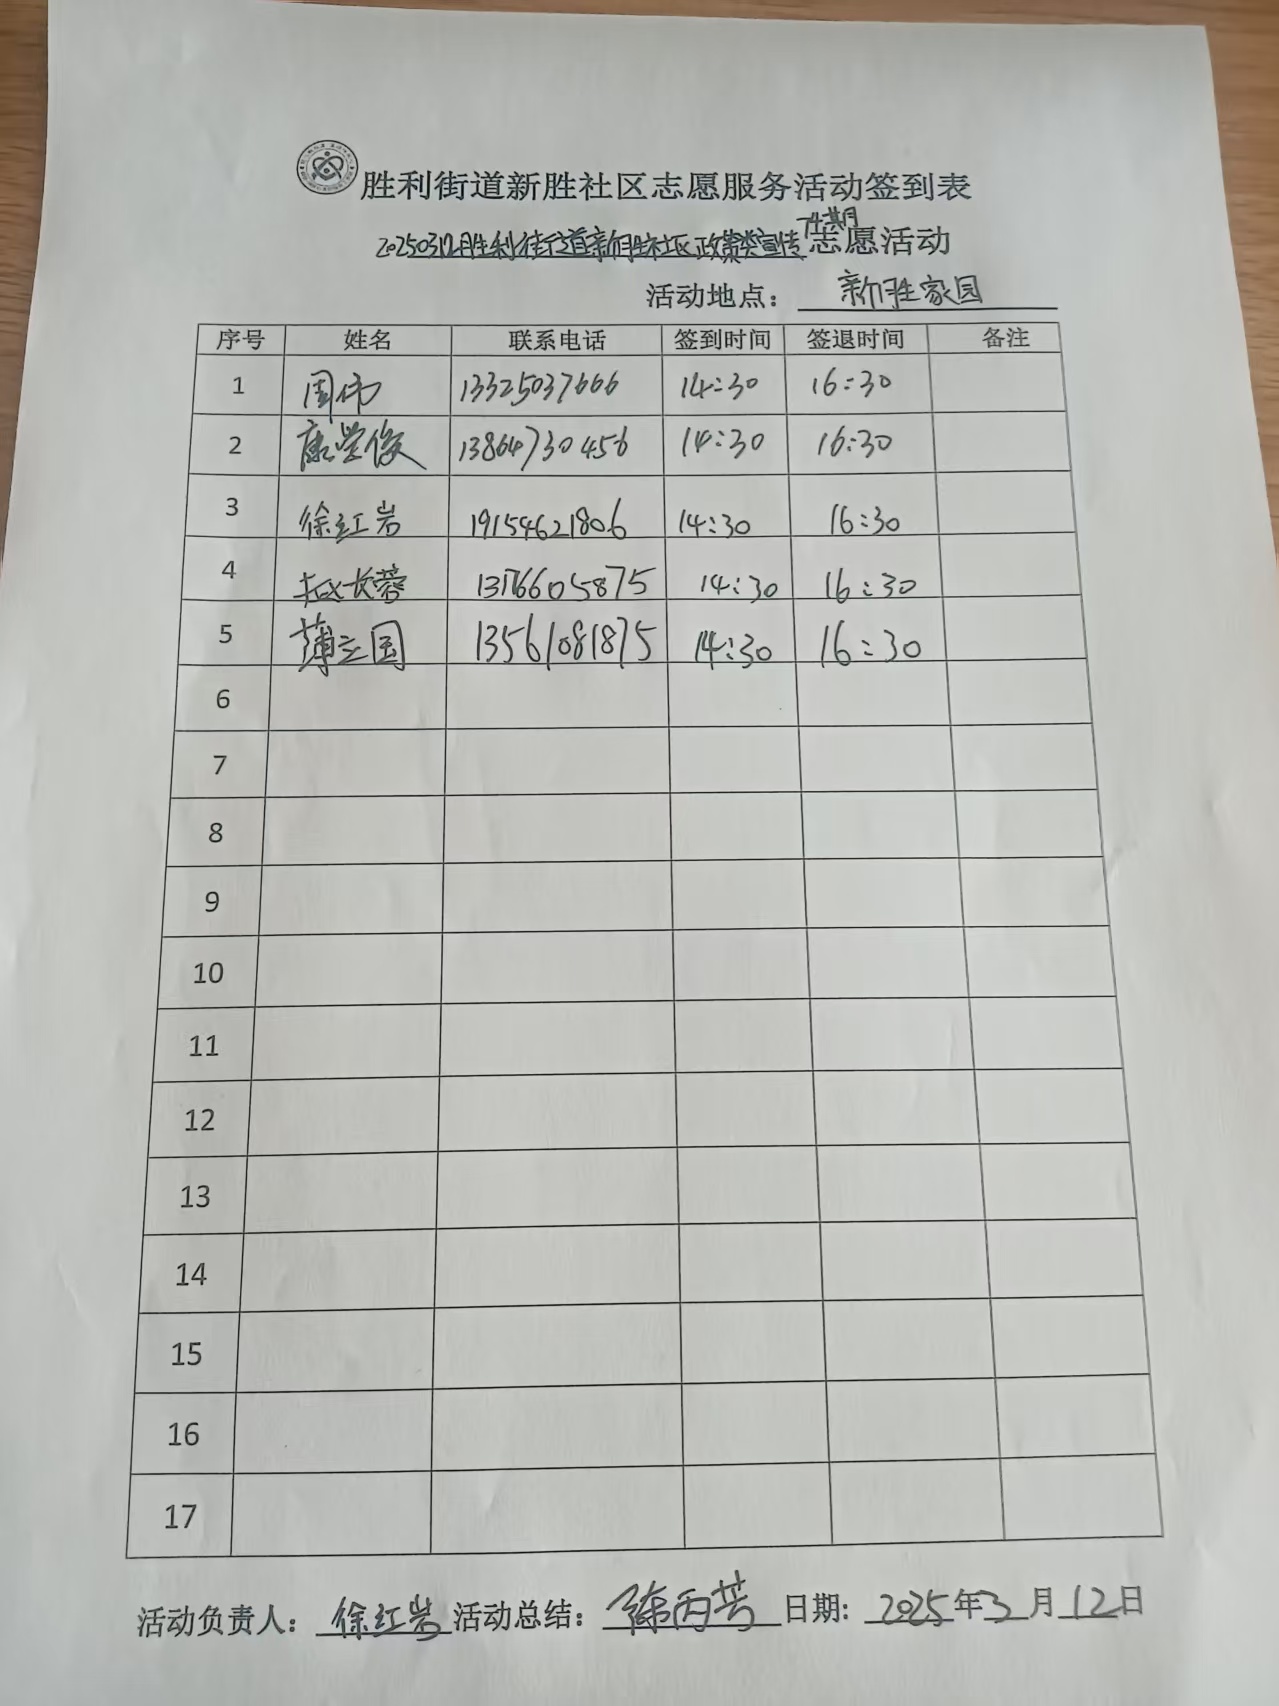 胜利街道新胜社区志愿服务活动签到表
20250312胜利街道新胜社区政策类宣传 志愿活动
活动地点：新胜家园
序号 姓名 联系电话 签到时间 签退时间 备注
1 周伟 13325037666 14:30 16:30
2 康学俊 13864730456 14:30 16:30
3 徐红岩 19154621806 14:30 16:30
4 长蓉 13766605875 14:30 16:30
5 薄立国 13561081875 14:30 16:30
6
7
8
9
10
11
12
13
14
15
16
17
活动负责人：徐红岩 活动总结：陈丙芳 日期：2025年3月12日